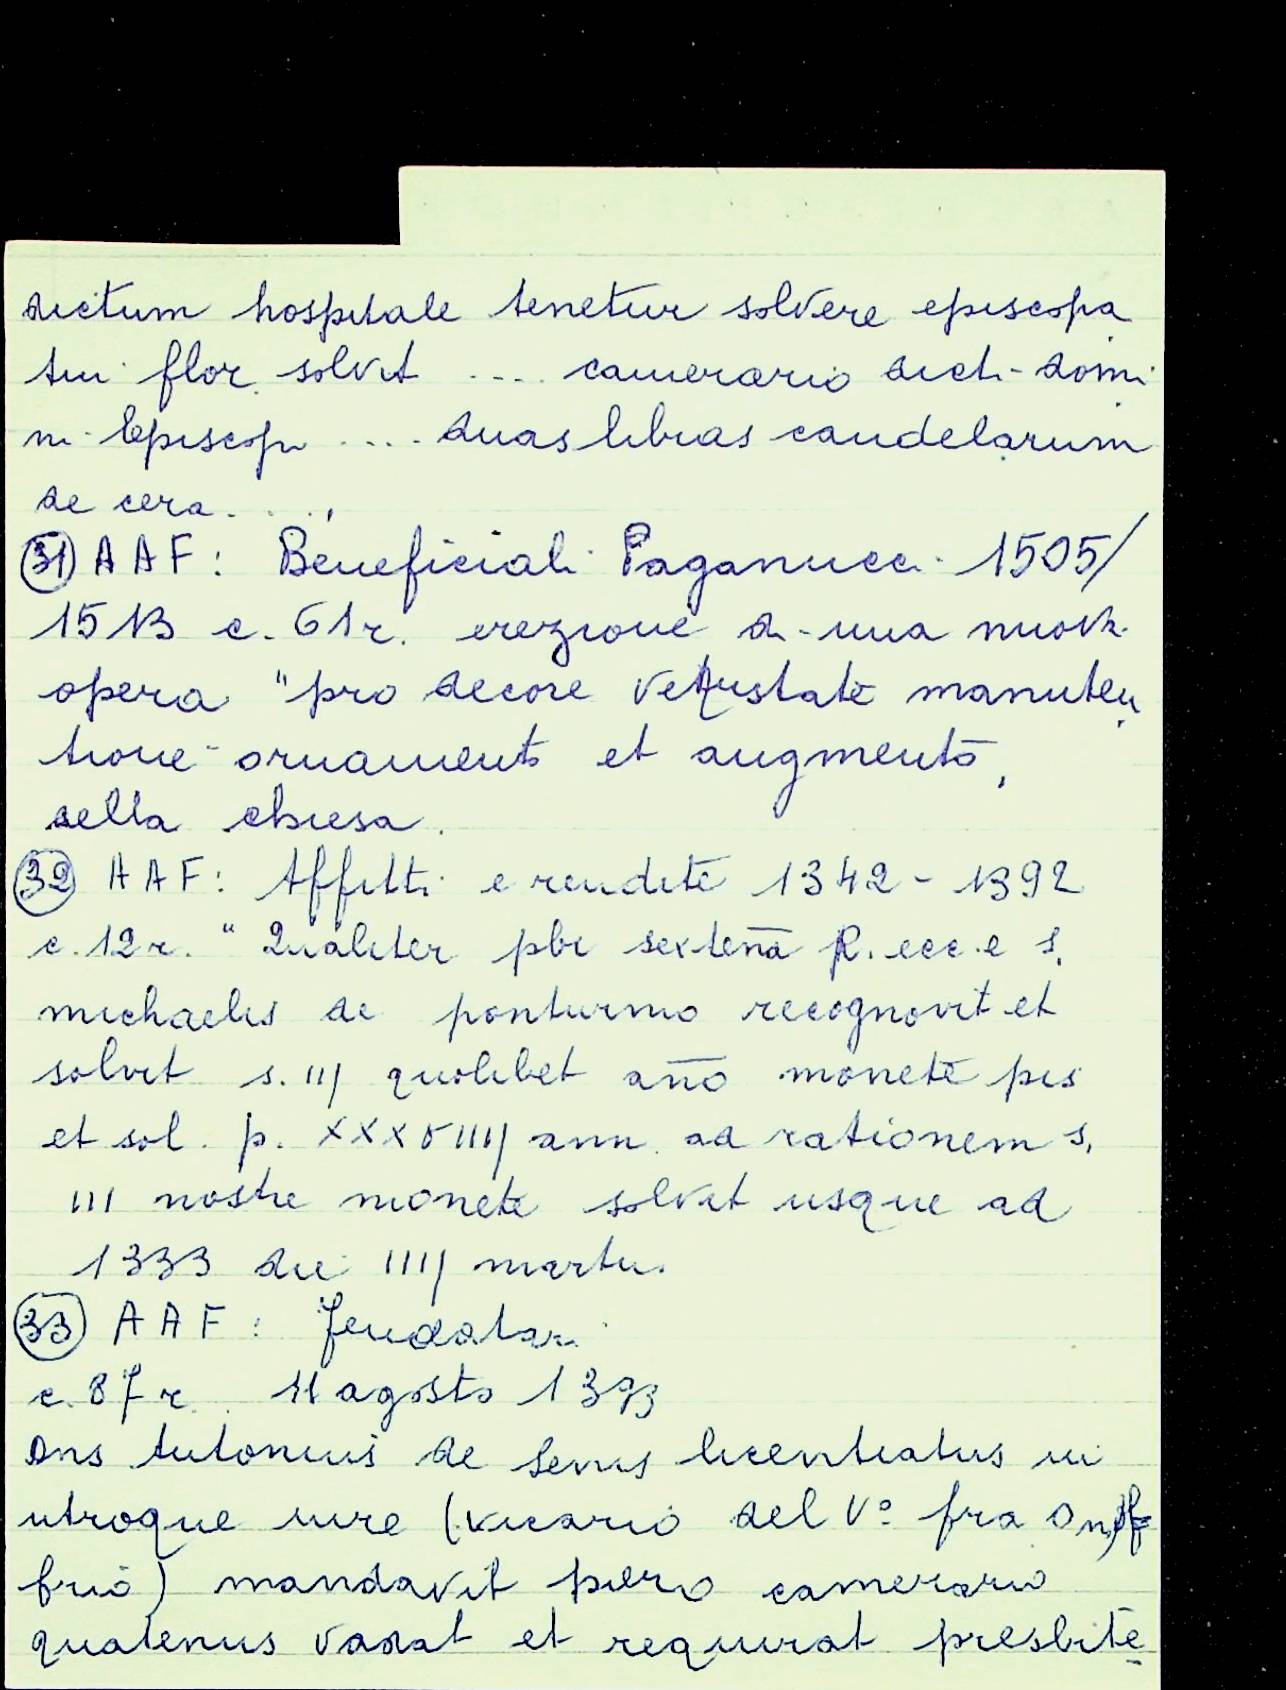 dictum hospitale tenetur solvere episcopa
tui flor. solvit .... camerario dicti domi
ni Episcopi .... duas libras candelarum
de cera....
31 AAF: Beneficiali Paganucci 1505/
1513 c. 61 r. erezione di una nuova
opera "pro decore vetustate manuten
tione ornamento et augmento,
della chiesa.
32 AAF: Affitti e rendite 1342 - 1392
c. 12 r. " Qualiter pbr sextenā R. ecc.e S.
michaelis de ponturmo recognovit et
solvit s. III quolibet año monete pis
et sol. p. XXXVIIII ann. ad rationem s.
III nostre monete solvit usque ad
1333 die IIII martii.
33 AAF: feudatari
c. 87 r. 11 agosto 1393
Dns Antonius de Senis licentiatus in
utroque iure (vicario del Vº fra Onof
frio) mandavit piero camerario
quatenus vadat et requirat presbite